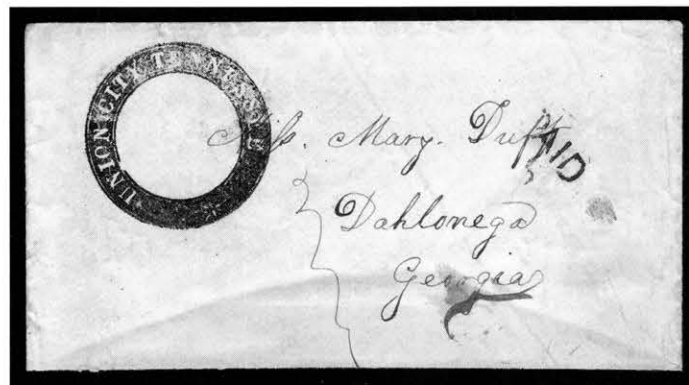 UNION CITY TENNESSEE
Miss. Mary. Duff
PAID
Dahlonega
Georgia